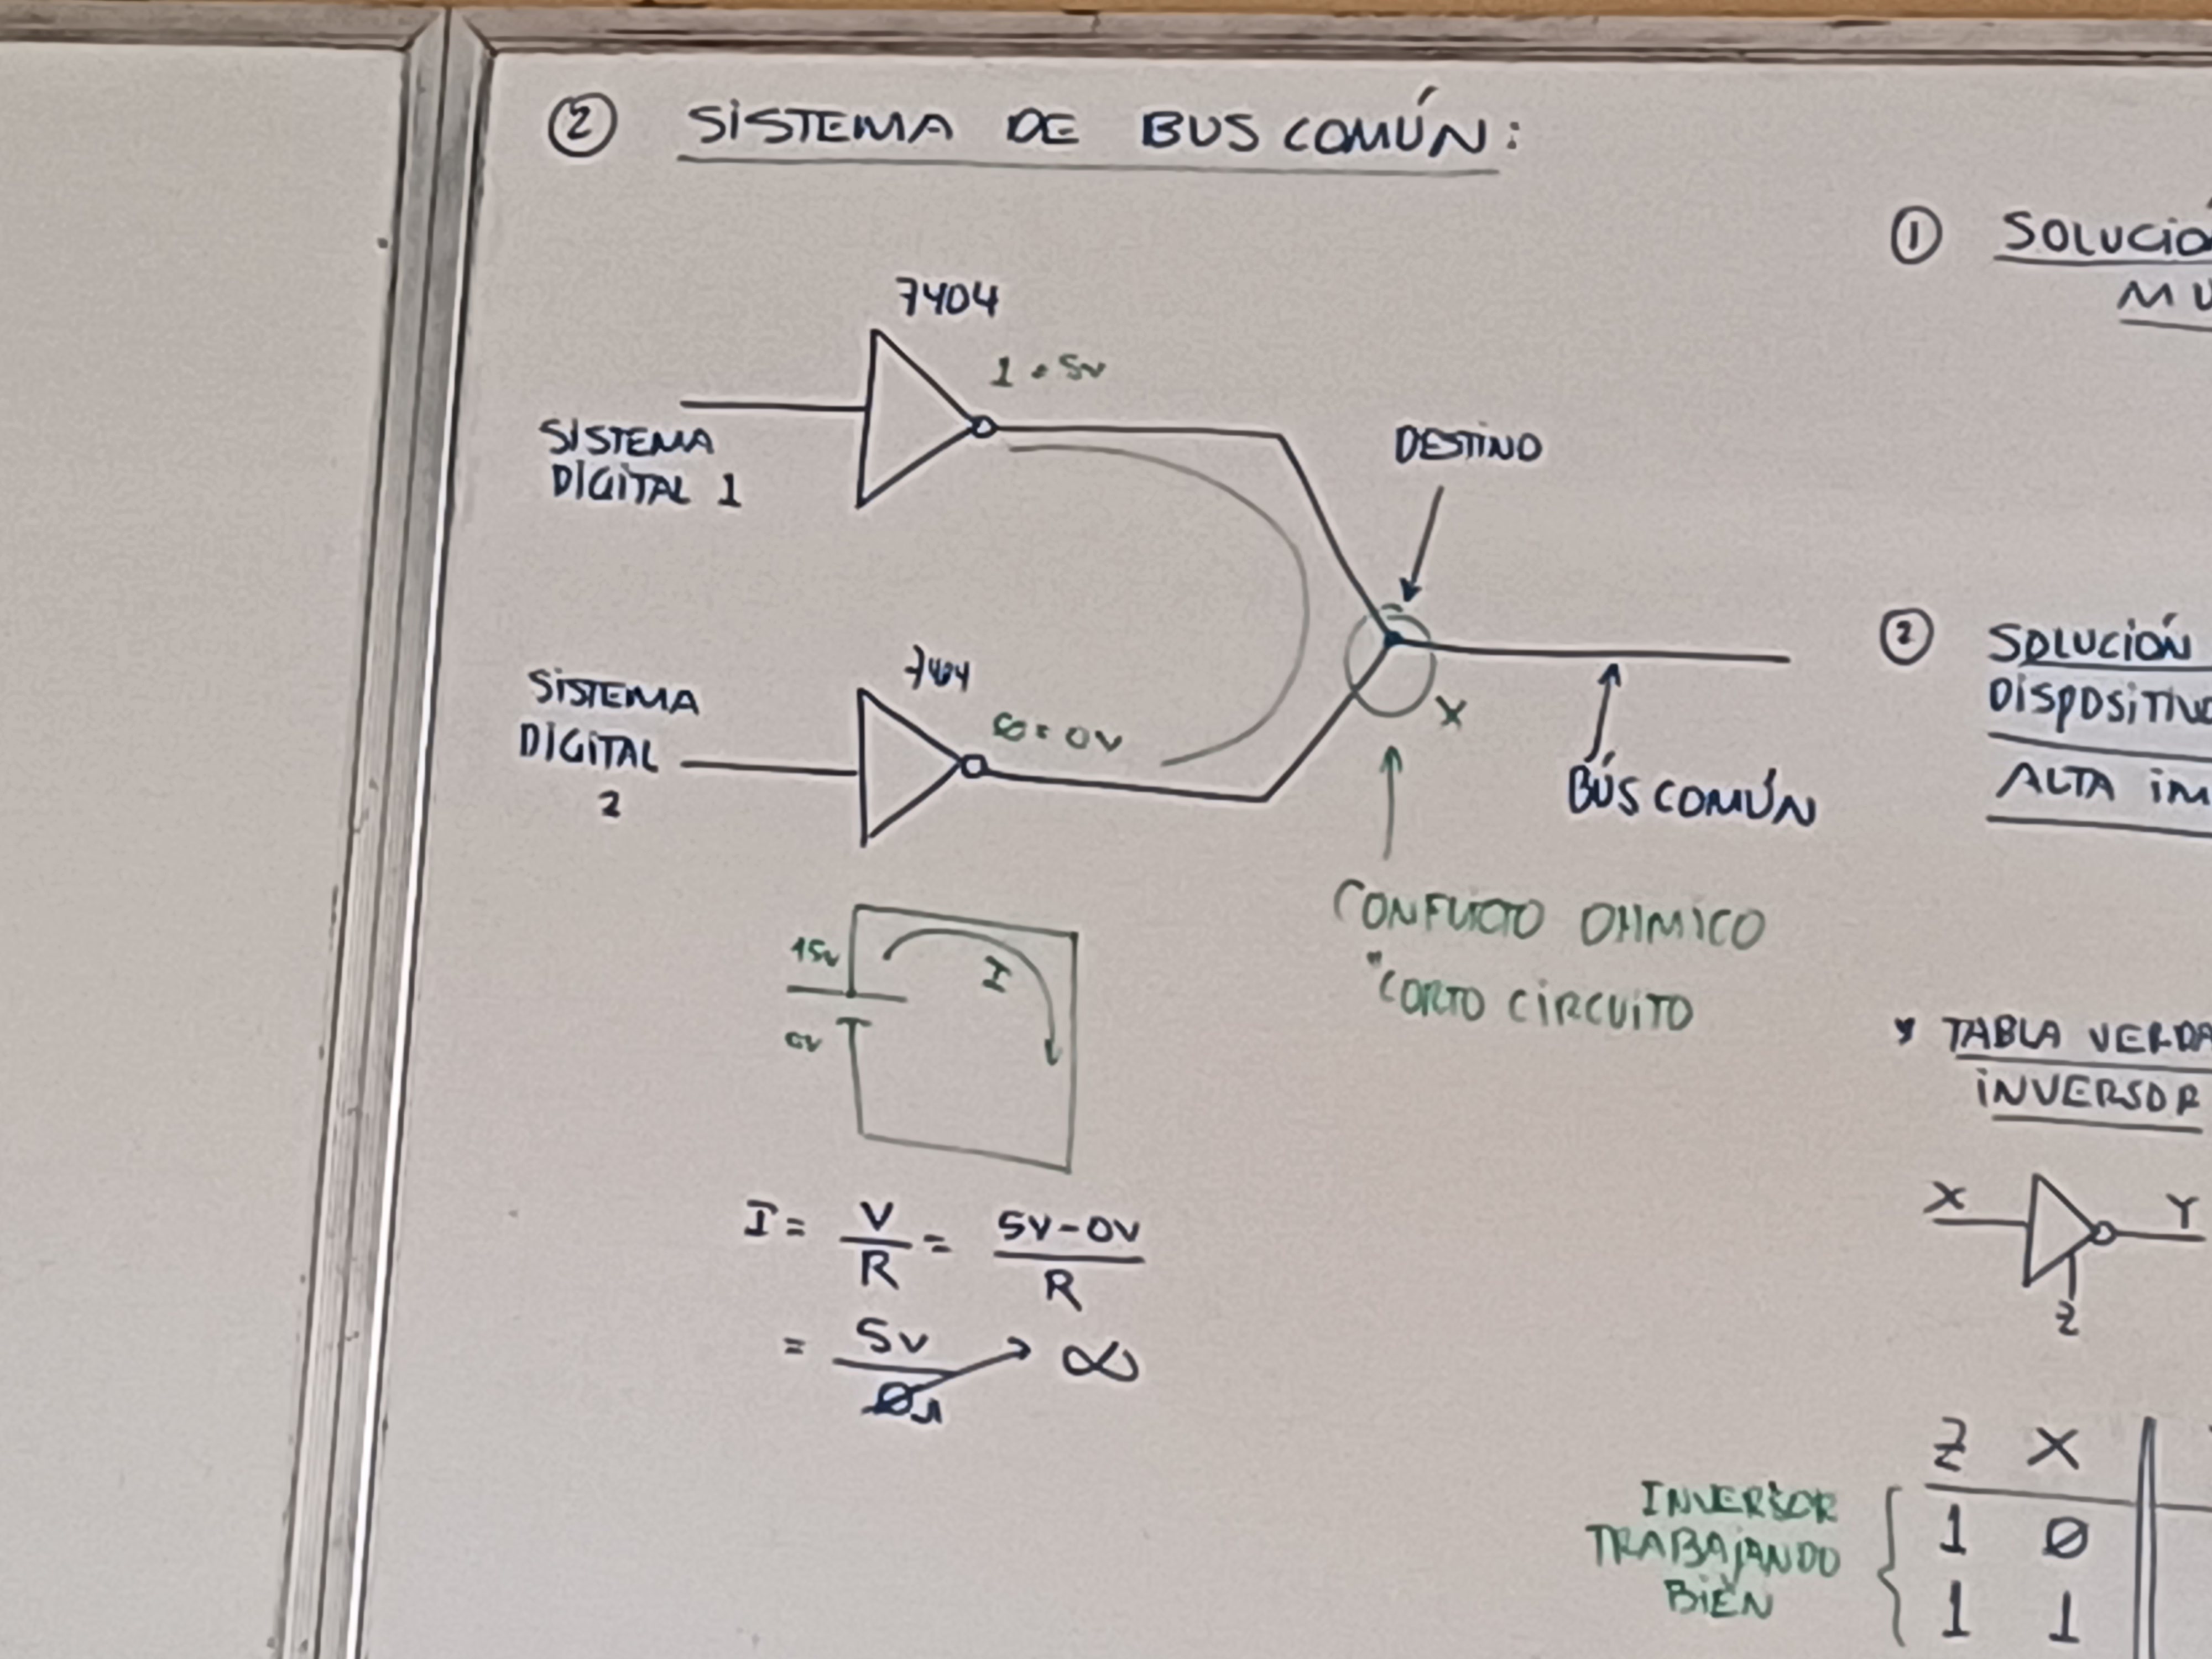 ② SISTEMA DE BUS COMÚN:
7404
1 = 5v
SISTEMA
DIGITAL 1
DESTINO
7404
SISTEMA
DIGITAL
2
Ø = 0V
X
BÚS COMÚN
CONFLICTO OHMICO
"CORTO CIRCUITO
+5v
0v
I
I = V/R = 5V-0V/R
= 5v/Ø → ∞
① SOLUCIÓ
MU
② SOLUCIÓN
DISPOSITIVO
ALTA IM
* TABLA VERDA
INVERSOR
X Y
Z
Z X
INVERSOR
TRABAJANDO
BIEN
1 Ø
1 1